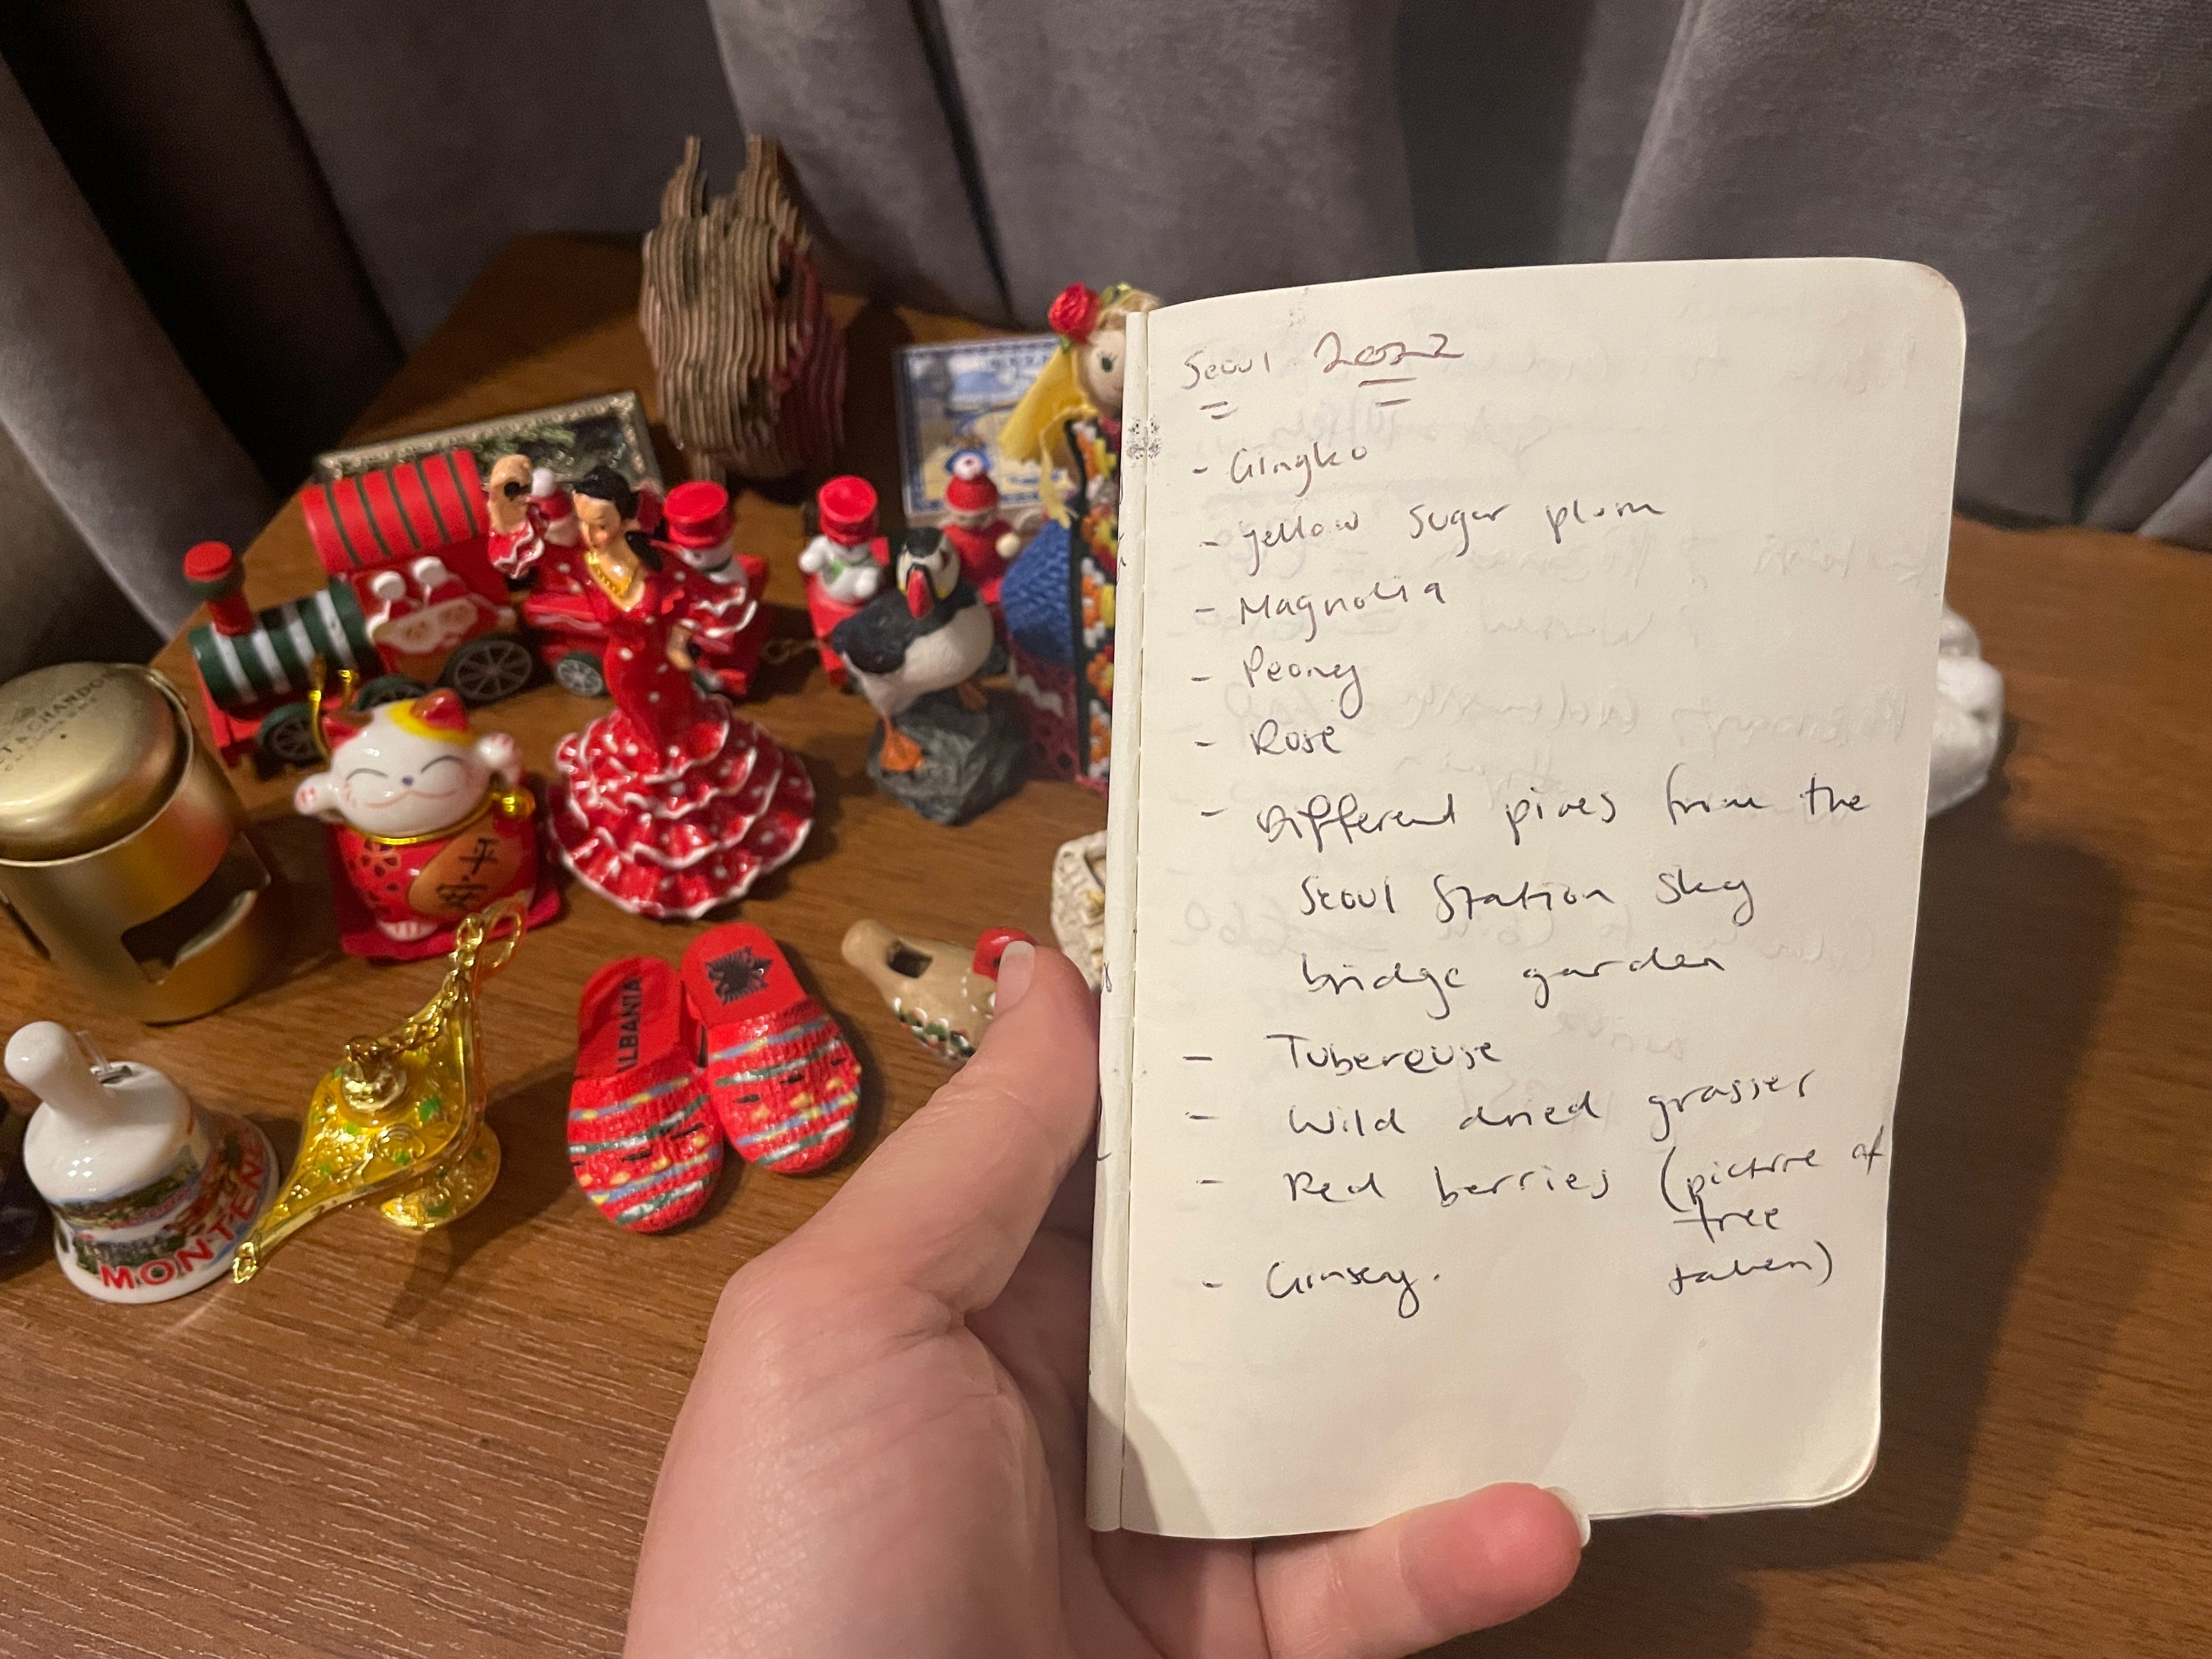 Seoul 2022
- Gingko
- yellow sugar plum
- Magnolia
- Peony
- Rose
- Different pines from the
Seoul Station Sky
bridge garden
- Tubereuse
- Wild dried grasses
- Red berries (picture of
tree
taken)
- Ginseng.
T & CHANDON
平
安
ALBANIA
MONTENE